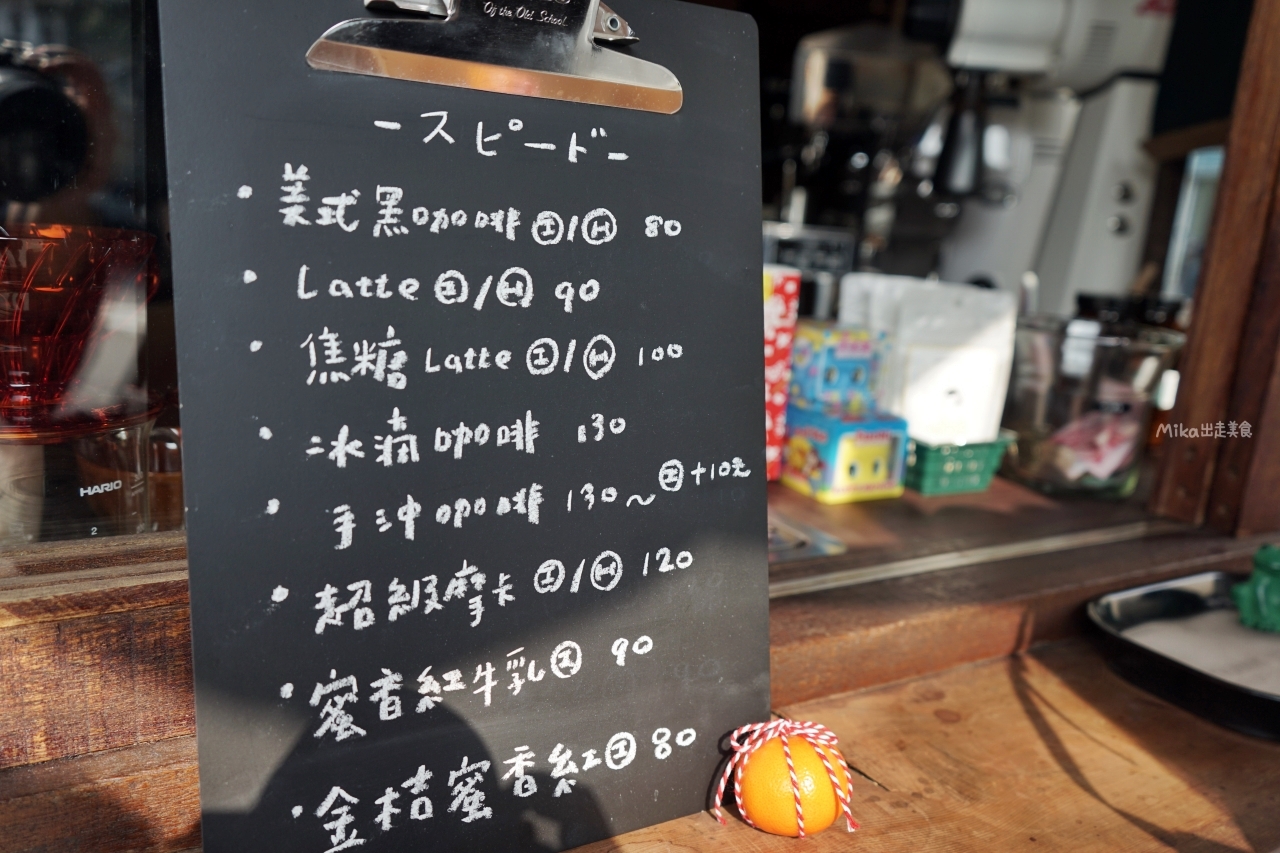 Of the Old School
-スピード-
• 美式黑咖啡 I/H 80
• Latte I/H 90
• 焦糖 Latte I/H 100
• 冰滴咖啡 130
• 手沖咖啡 130~ I+10元
• 超級摩卡 I/H 120
• 蜜香紅牛乳 I 90
• 金桔蜜香紅 I 80
HARIO
2
Mika出走美食